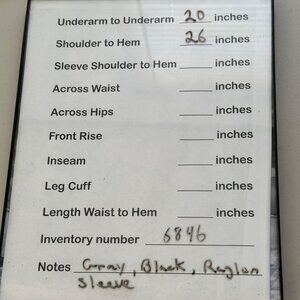 Underarm to Underarm 20 inches
Shoulder to Hem 26 inches
Sleeve Shoulder to Hem ____ inches
Across Waist ____ inches
Across Hips ____ inches
Front Rise ____ inches
Inseam ____ inches
Leg Cuff ____ inches
Length Waist to Hem ____ inches
Inventory number 6846
Notes Gray, Black, Raglan
Sleeve